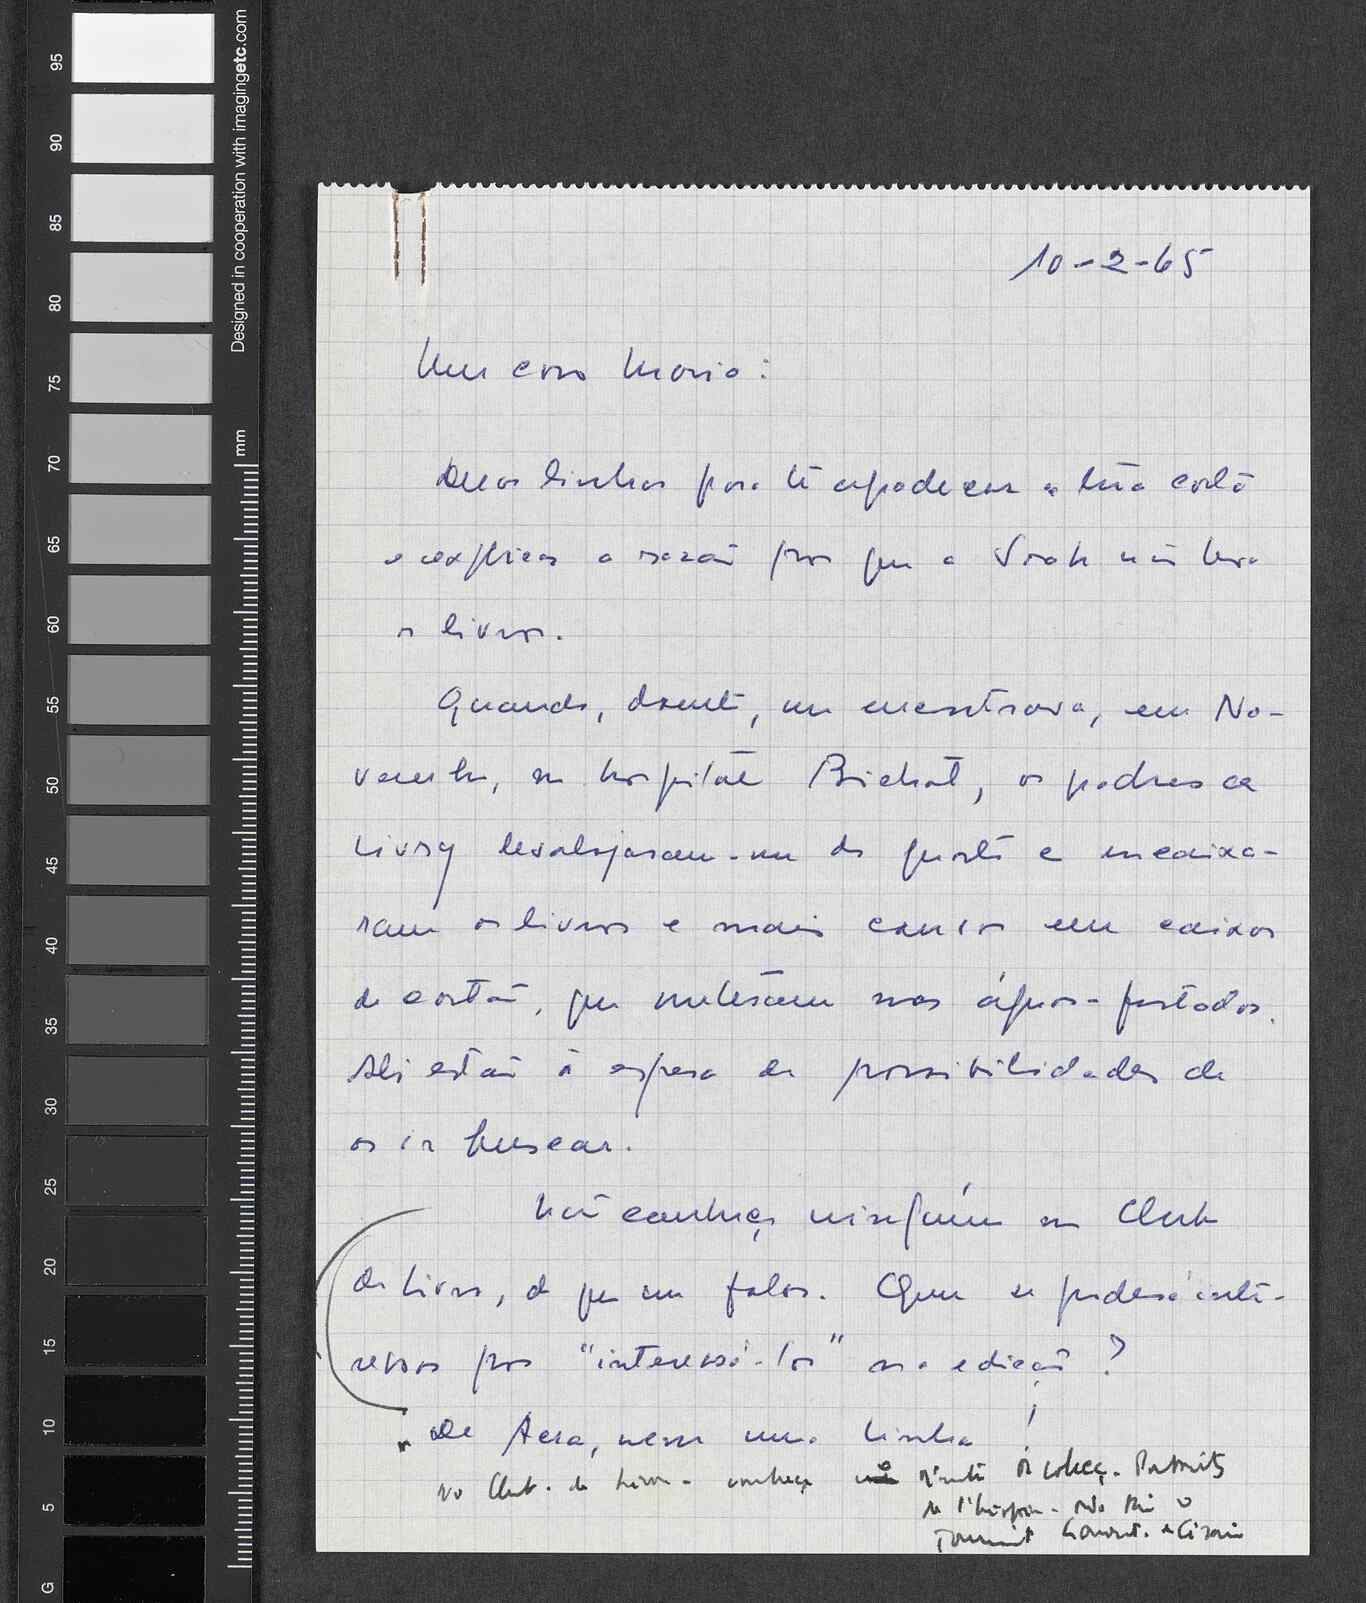 95
90
85
80
75
70
65
60
55
50
45
40
35
30
25
20
15
10
5
G
Designed in cooperation with imagingetc.com
mm
10-2-65
Meu caro Mario:
Duas linhas para te agradecer a tua carta
e explicar a razão por que a Sarah não leva
os livros.
Quando, doente, me encontrava, em No-
vembro, no hospital Bichat, os padres de
Livry desalojaram-me do quarto e encaixa-
ram os livros e mais coisas em caixas
de cartão, que meteram nas águas-furtadas.
Ali estão à espera de possibilidades de
os ir buscar.
Não conheço ninguém no Club
do Livro, de que me falas. Quem se poderá inte-
ressar por "interessá-los" na edição?
De Acra, nem uma linha!
No Club. do Livro - conheço